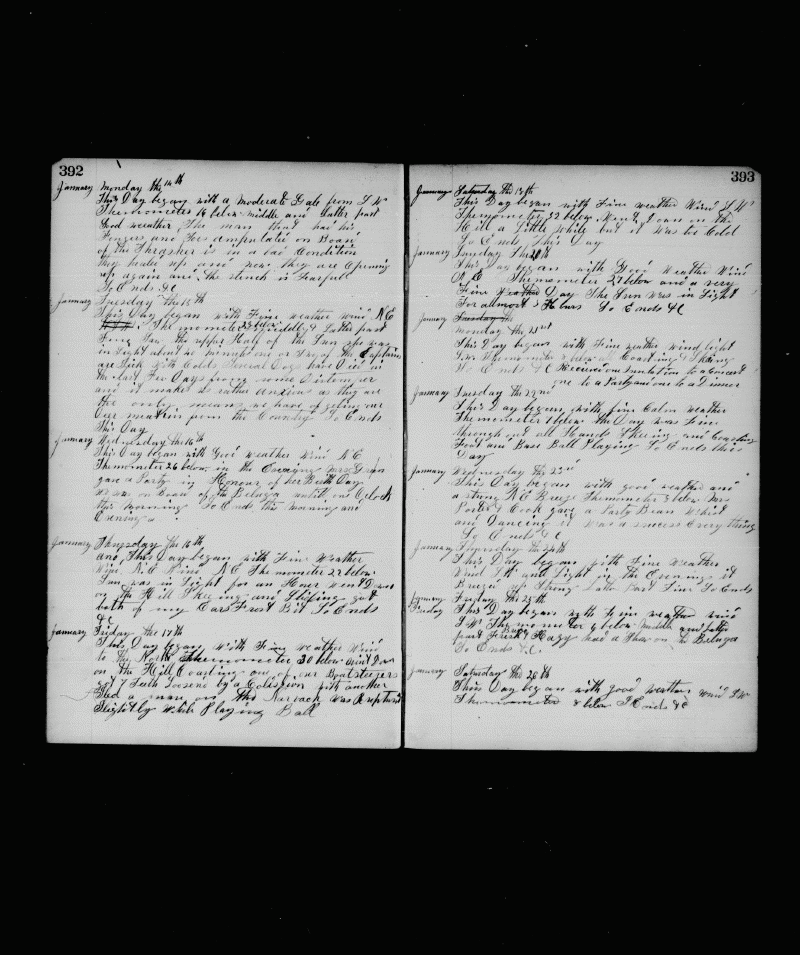 392
January Monday the 14th
This Day began with a Moderate Gale from S W
Thermometer 16 below middle and Latter part
Good weather The man that had his
Fingers and Toes amputated on Board
of the Thrasher is in a bad Condition
they healed up and now they are Opening
up again and the stench is Fearfull
So Ends &C
January Tuesday the 15th
This Day began with Fine weather wind N E
The mometer 25 below Middle & Latter part
Fine Saw the upper Half of the Sun she was
in Sight about 20 minuts one or two of the Captains
are Sick with Colds Several Dogs have Died in
the last Few Days from some Distemper
and it makes it rather as they are
the only means we have of geting our
Deer meat in from the Country So Ends
This Day
January Wednesday the 16th
This Day began with Good weather wind N E
Thermometer 26 below in the Evening Mrs Green
gave a Party in Honour of her Birth Day
we was on Board of the Beluga until one Oclock
this morning So Ends this morning and
Evening
January Thursday the 16th
and This Day began with Fine Weather
Wind N.E Wind N.E The mometer 22 below
Sun was in Sight for an Houer went Down
on the Hill Skeeing and Sliping got
both of my Ears Frost Bit So Ends
&C
January Friday the 17th
This Day began with Fine weather Wind
to the North Thermometer 30 below went Down
on the Hill Coasting one of our Boatsteerers
got 7 Teeth Loosend by a Colission with another
Sled a man on the Narvach was Ruptured
Slightly while Playing Ball
393
January Saturday the 19th
This Day began with Fine weather Wind S W
Thermometer 32 below Went Down on the
Hill a Little while but it was too Cold
So Ends This Day
January Sunday The 20th
This Day began with Good Weather Wind
N E Thermometer 27 below and a very
Fine Weather Day The Sun was in Sight
For allmost 3 Hours So Ends &C
January Tuesday the
Monday the 21st
This Day began with Fine weather wind light
S.W Thermometer below all Coasting & Skeing
So Ends &C Received an invitation to a Concert
one to a Party and one to a Dinner
January Tuesday the 22nd
This Day began with fine Calm weather
Thermometer 1 below the Day was Fine
through out all Hands Skeeing and Coasting
Foot and Base Ball Playing So Ends this
Day
January Wednesday the 23rd
This Day began with good weather and
a strong N.E Breeze Thermometer 3 below Mrs
Porter & Cook gave a Party Bean Whist
and Dancing it was a success Every thing
So Ends &C
January Thursday the 24th
This Day began with Fine weather
Wind S W and Light in the Evening it
Breezed up Strong Latter Part Fine So Ends
January Friday the 25th
Friday This Day began with Fine weather wind
S W Thermometer 9 below Middle and Latter
part Fresh & Hazy had a Show on the Beluga
So Ends &C.
January Saturday the 26th
This Day began with good weather wind S W
Thermometer 8 below S Ends &C